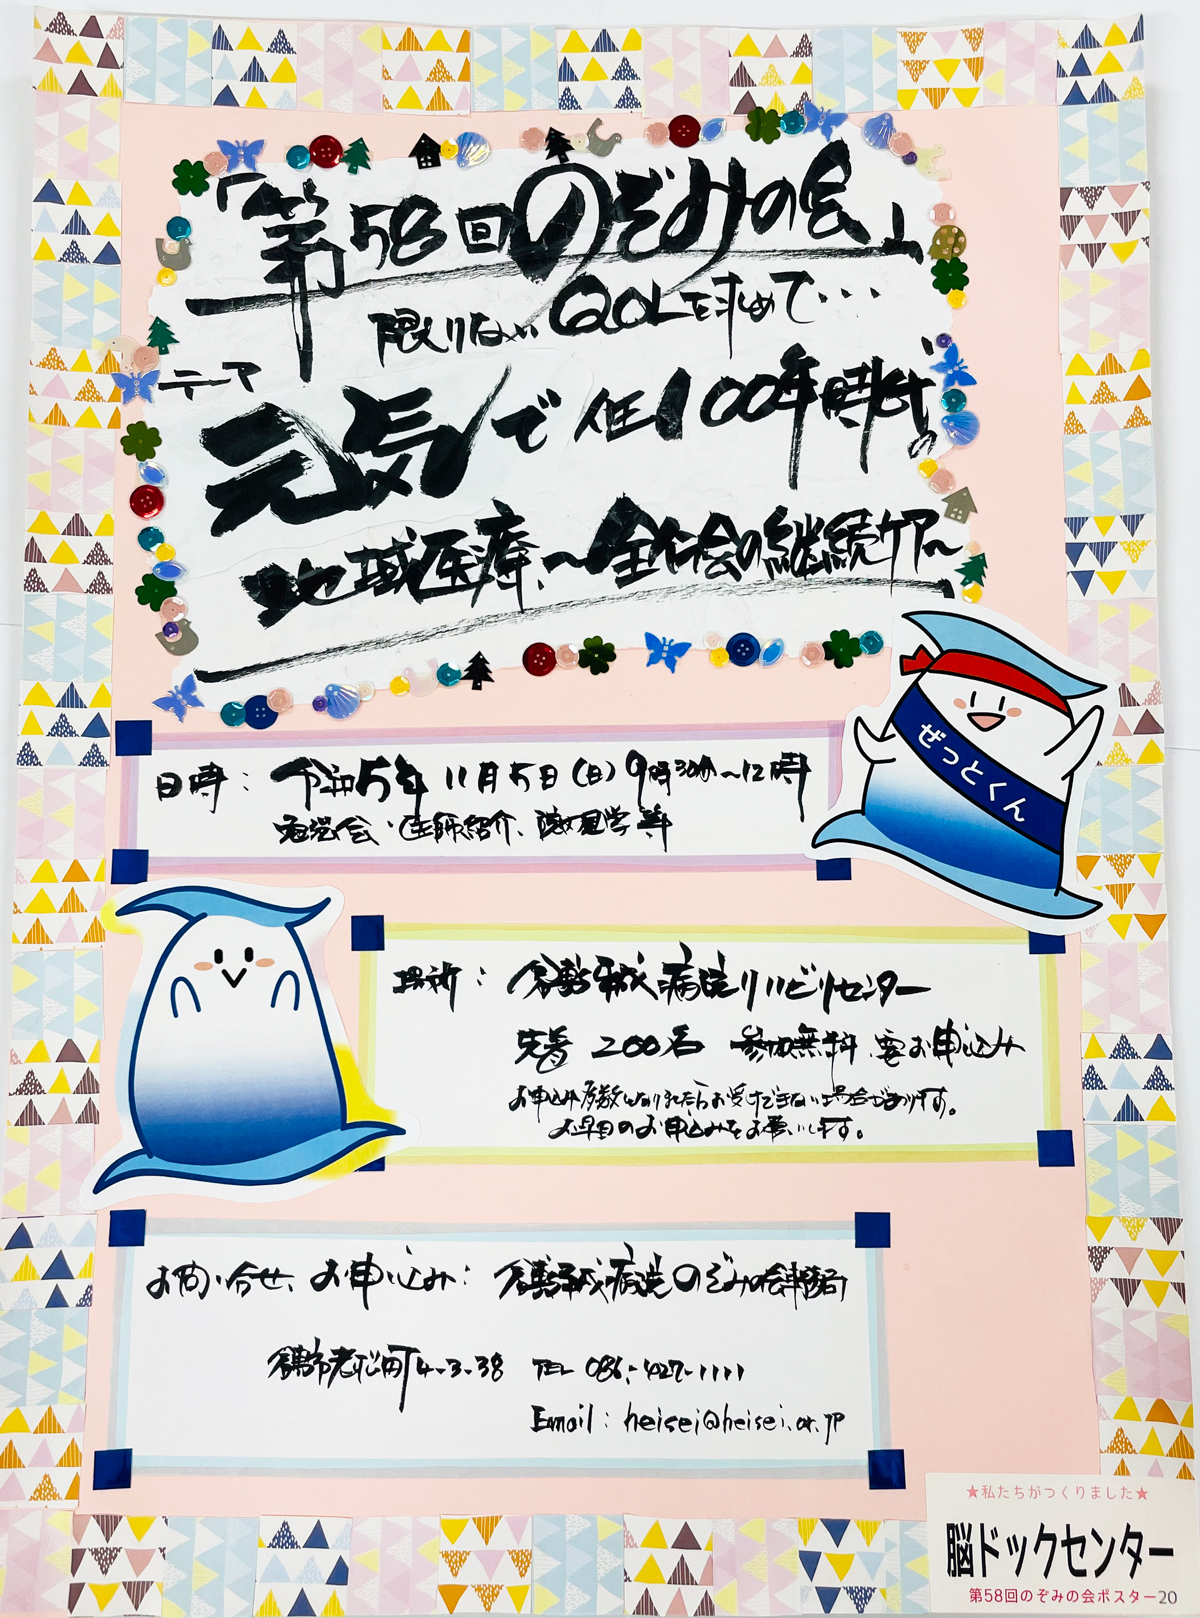 「第58回のぞみの会」
限りないQOLを求めて・・・
テーマ
元気で 人生100年時代の
地域医療、～全仁会の継続ケア～
ぜっとくん
日時： 令和5年 11月5日（日）9時30分～12時
勉強会・医師紹介、施設見学等
場所： 倉敷平成病院リハビリセンター
先着 200名 参加無料 要お申込み
お申込み多数になりましたらお受けできない場合があります。
お早目のお申込みをお願いします。
お問い合せ、お申し込み： 倉敷平成病院のぞみの会事務局
倉敷市老松町4-3-38 TEL 086-427-1111
Email：heisei@heisei.or.jp
★私たちがつくりました★
脳ドックセンター
第58回のぞみの会ポスター20